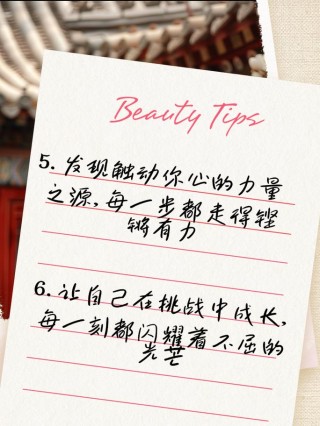 Beauty Tips
5. 发现触动你心的力量
之源,每一步都走得铿
锵有力
6. 让自己在挑战中成长,
每一刻都闪耀着不屈的
光芒